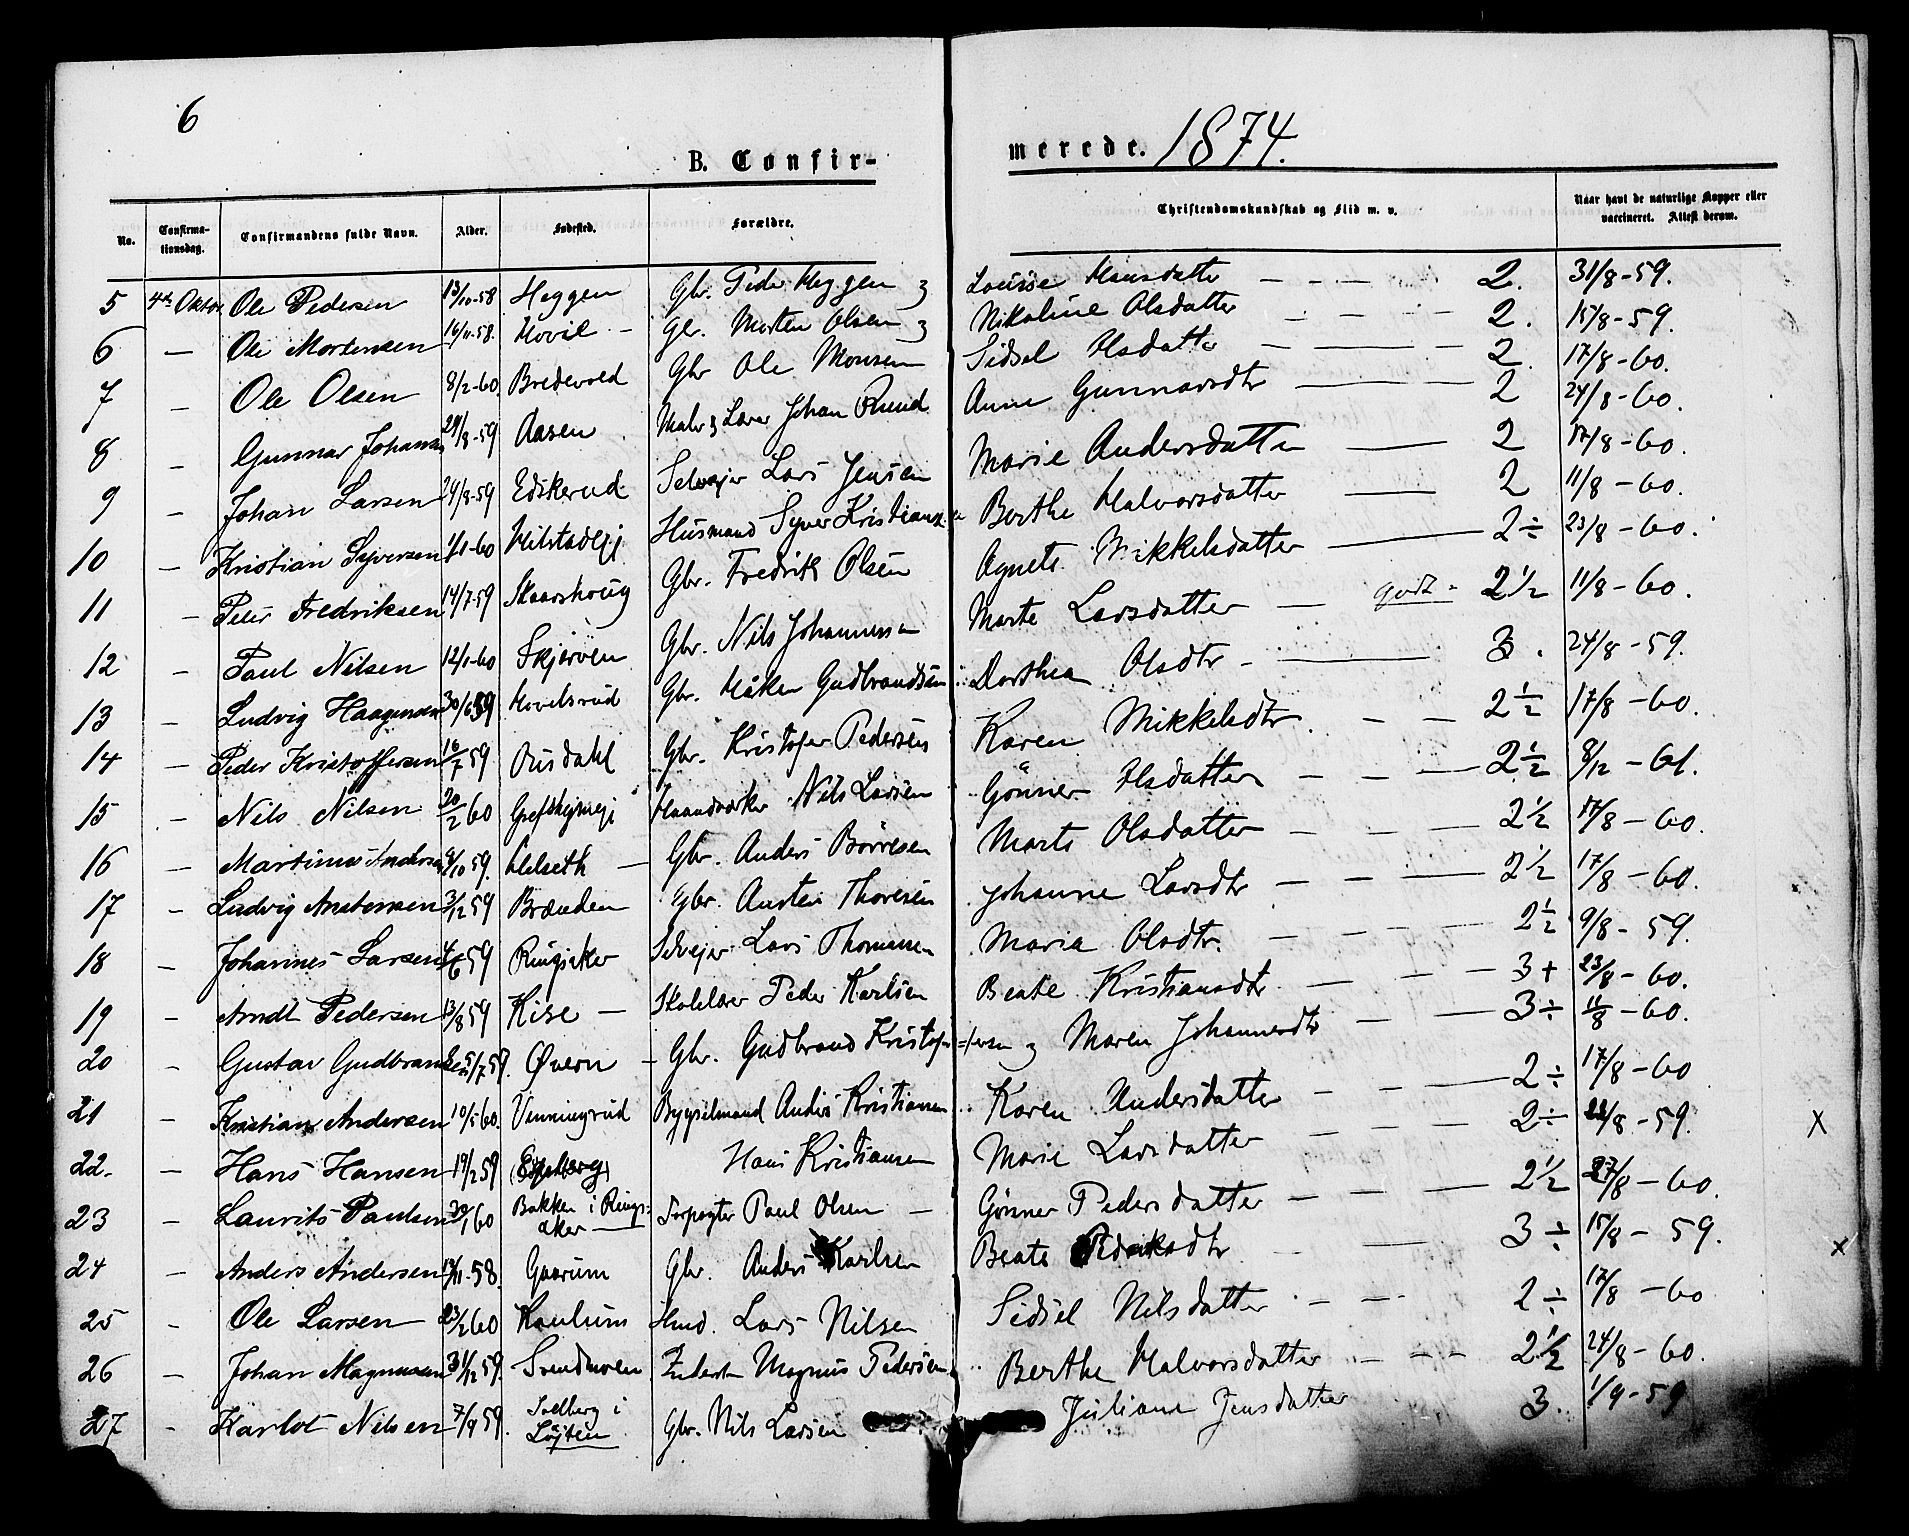 6
B. Confir-
merede. 1874.
No. Confirma-tionsdag. Confirmandens fulde Navn. Alder. Fødested. Forældre. Christendomskundskab og Flid m. v. Naar havt de naturlige Kopper eller vaccineret. Attest derom.
5 4de Oktbr. Ole Pedersen 13/10-58 Heggen Gbr. Peder Heggen og Louise Hansdatter — 2. 31/8-59.
6 — Ole Mortensen 16/11-58. Hovil — Gbr. Morten Olsen og Nikoline Olsdatter — 2. 15/8-59.
7 — Ole Olsen 8/2-60. Bredevold Gbr Ole Monsen Sidsel Olsdatter — 2. 17/8-60.
8 — Gunnar Johansen 29/8-59 Aasen Maler og Lærer Johan Ruud Anne Gunnarsdtr — 2 24/8-60.
9 — Johan Larsen 24/8-59 Edskerud Selvejer Lars Jensen Marie Andersdatter — 2 17/8-60.
10 — Kristian Syversen 1/1-60 Hilstadejj Husmand Syver Kristiansen Berthe Halvorsdatter — 2 11/8-60.
11 — Peter Fredriksen 14/7-59 Skaarshoug Gbr. Fredrik Olsen Agnete Mikkelsdatter — 2÷ 23/8-60.
12 — Paul Nilsen 12/1-60 Skjerven Gbr. Nils Johannessen Marte Larsdatter — godt - 2½ 11/8-60.
13 — Ludvig Haagensen 30/6 59 Hovelsrud Gbr. Håken Gudbrandsen Dorthea Olsdtr — 3. 24/8-59.
14 — Peder Kristoffersen 16/7 59 Ousdahl Gbr. Kristofer Pedersen Karen Mikkelsdtr — 2½ 17/8-60.
15 — Nils Nilsen 20/2 60 Haandværker Nils Larsen Gönner Olsdatter — 2½ 8/12-61.
16 — Martinus Andersen 9/10 59. Helseth — Gbr. Anders Børresen Marte Olsdatter — 2½ 17/8-60.
17 — Ludvig Austensen 3/12 59 Brænden Gbr. Austen Thoresen Johanne Larsdtr — 2½ 17/8-60.
18 — Johannes Larsen 4/6 59 Ringsaker Selvejer Lars Thomasen Maria Olsdtr. — 2½ 9/8-59.
19 — Arndt Pedersen 13/8 59 Kise — Skolelærer Peder Karlsen Beate Kristiansdtr — 3+ 23/8-60.
20 — Gustav Gudbrandsen 5/7 59. Øvern — Gbr. Gudbrand Kristofersen og Maren Johannesdtr — 3÷ 11/8-60.
21 — Kristian Andersen 10/5 60. Venningsrud Bygselmand Anders Kristiansen Karen Andersdatter — 2÷ 17/8-60
22. — Hans Hansen 19/2 59 Hans Kristiansen Marie Larsdatter — 2÷ 22/8-59. X
23 — Laurits Paulsen 30/1 60 Bakken i Rings-aker — Forpagter Paul Olsen — Gönner Pedersdatter — 2½ 27/8-60.
24 — Anders Andersen 19/11-58. Gaarum Gbr. Anders Karlsen Beate — 3÷ 15/8-59. x
25 — Ole Larsen 23/2 60 Kaulum Hmd. Lars Nilsen Sidsel Nilsdatter — 2÷ 17/8-60
26 — Johan Magnussen 31/12 59. Svendmoen Inderst Magnus Pedersen Berthe Halvorsdatter — 2½ 24/8-60.
27 — Karlot Nilsen 7/9 59. Sælberg i Löjten Gbr. Nils Larsen Juliane Jensdatter 3. 1/9-59